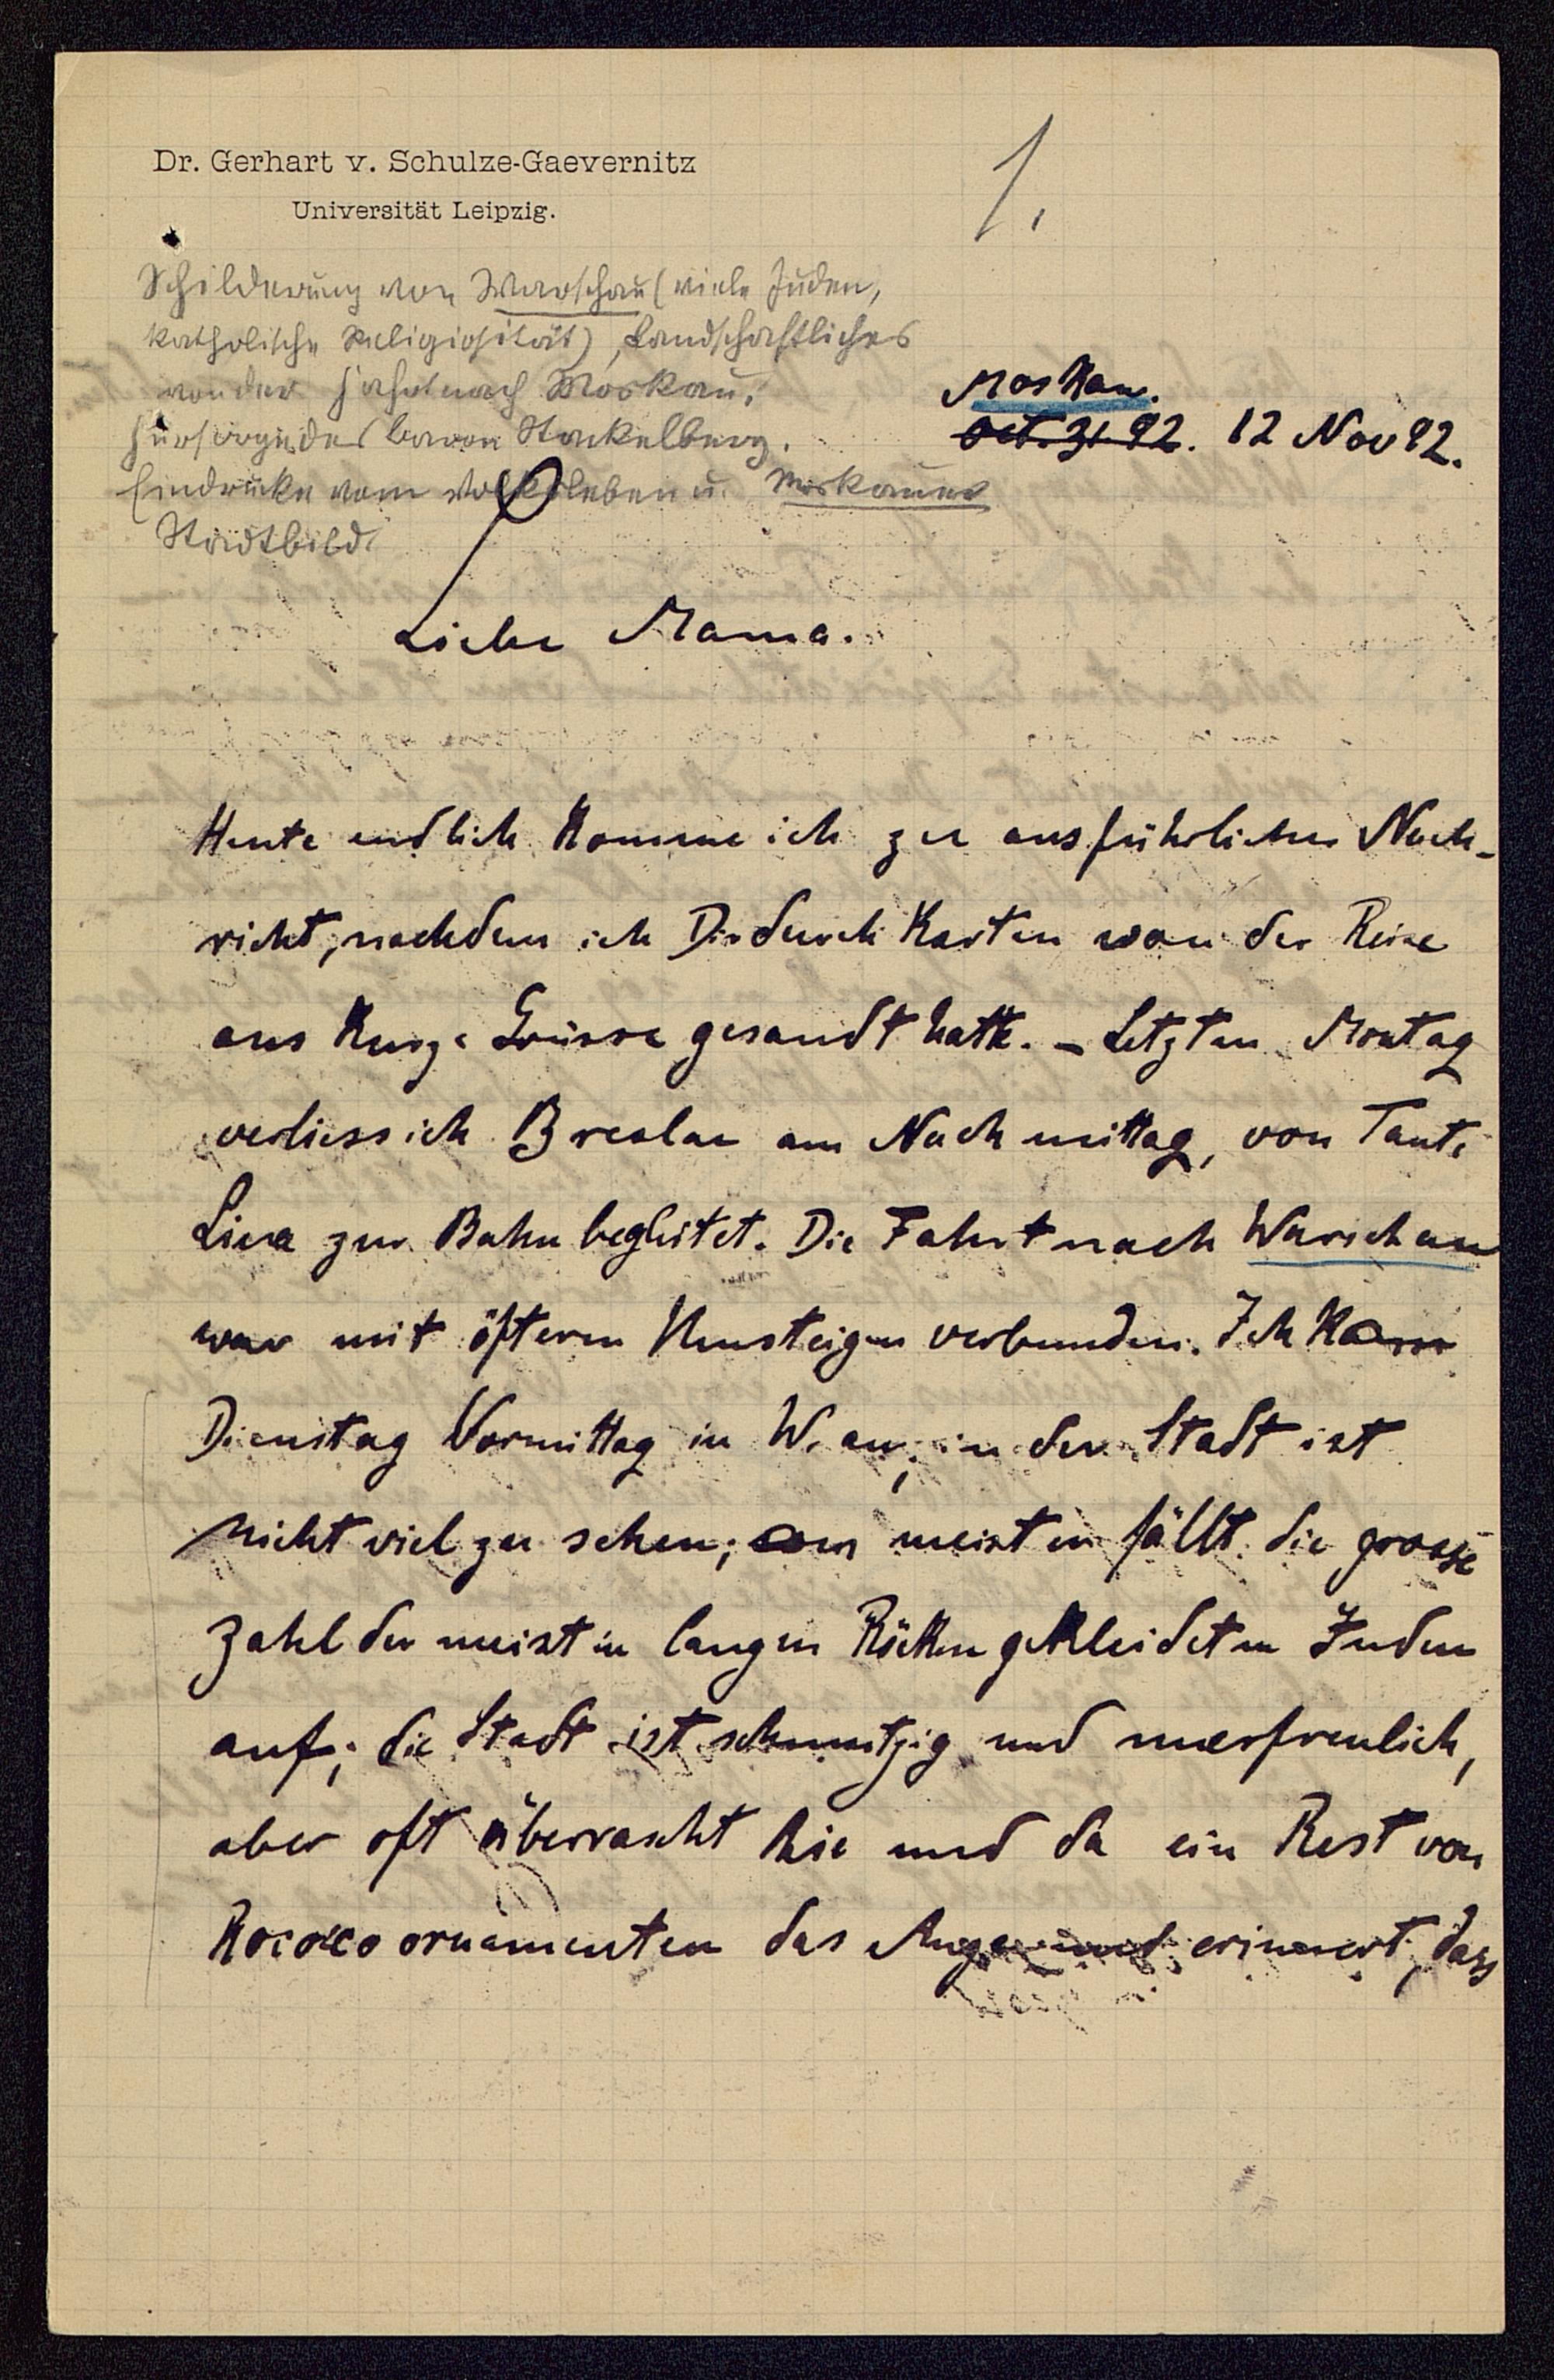 Dr. Gerhart v. Schulze-Gaevernitz
Universität Leipzig.
1.
Schilderung von Warschau (viele Juden,
katholische Religiosität), Landschaftliches
von der Fahrt nach Moskau,
Fürsorge des Baron Stackelberg.
Eindrücke vom Volksleben u. Moskauer
Stadtbild.
Moskau.
Oct. 31 92. 12 Nov 92.
Liebe Mama.
Heute endlich komme ich zu ausführlicher Nach-
richt, nachdem ich Dir durch Karten von der Reise
aus kurze Grüsse gesandt hatte. – Letzten Montag
verliess ich Breslau am Nachmittag, von Tante
Lina zur Bahn begleitet. Die Fahrt nach Warschau
war mit öfterem Umsteigen verbunden. Ich kam
Dienstag Vormittag in W. an; in der Stadt ist
nicht viel zu sehen; am meisten fällt die grosse
Zahl der meist in langen Röcken gekleideten Juden
auf; die Stadt ist schmutzig und unerfreulich,
aber oft überrascht hie und da ein Rest von
Rococoornamenten das Auge und erinnert, dass